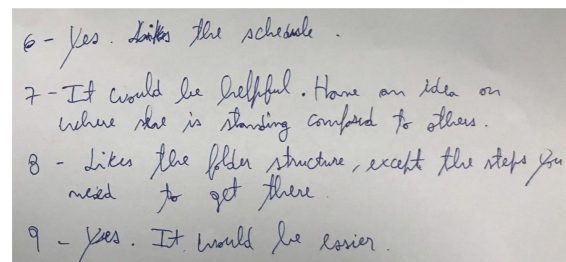 6 - Yes. Likes the schedule.
7 - It would be helpful. Have an idea on
where she is standing compared to others.
8 - Likes the folder structure, except the steps you
need to get there
9 - Yes. It would be easier.